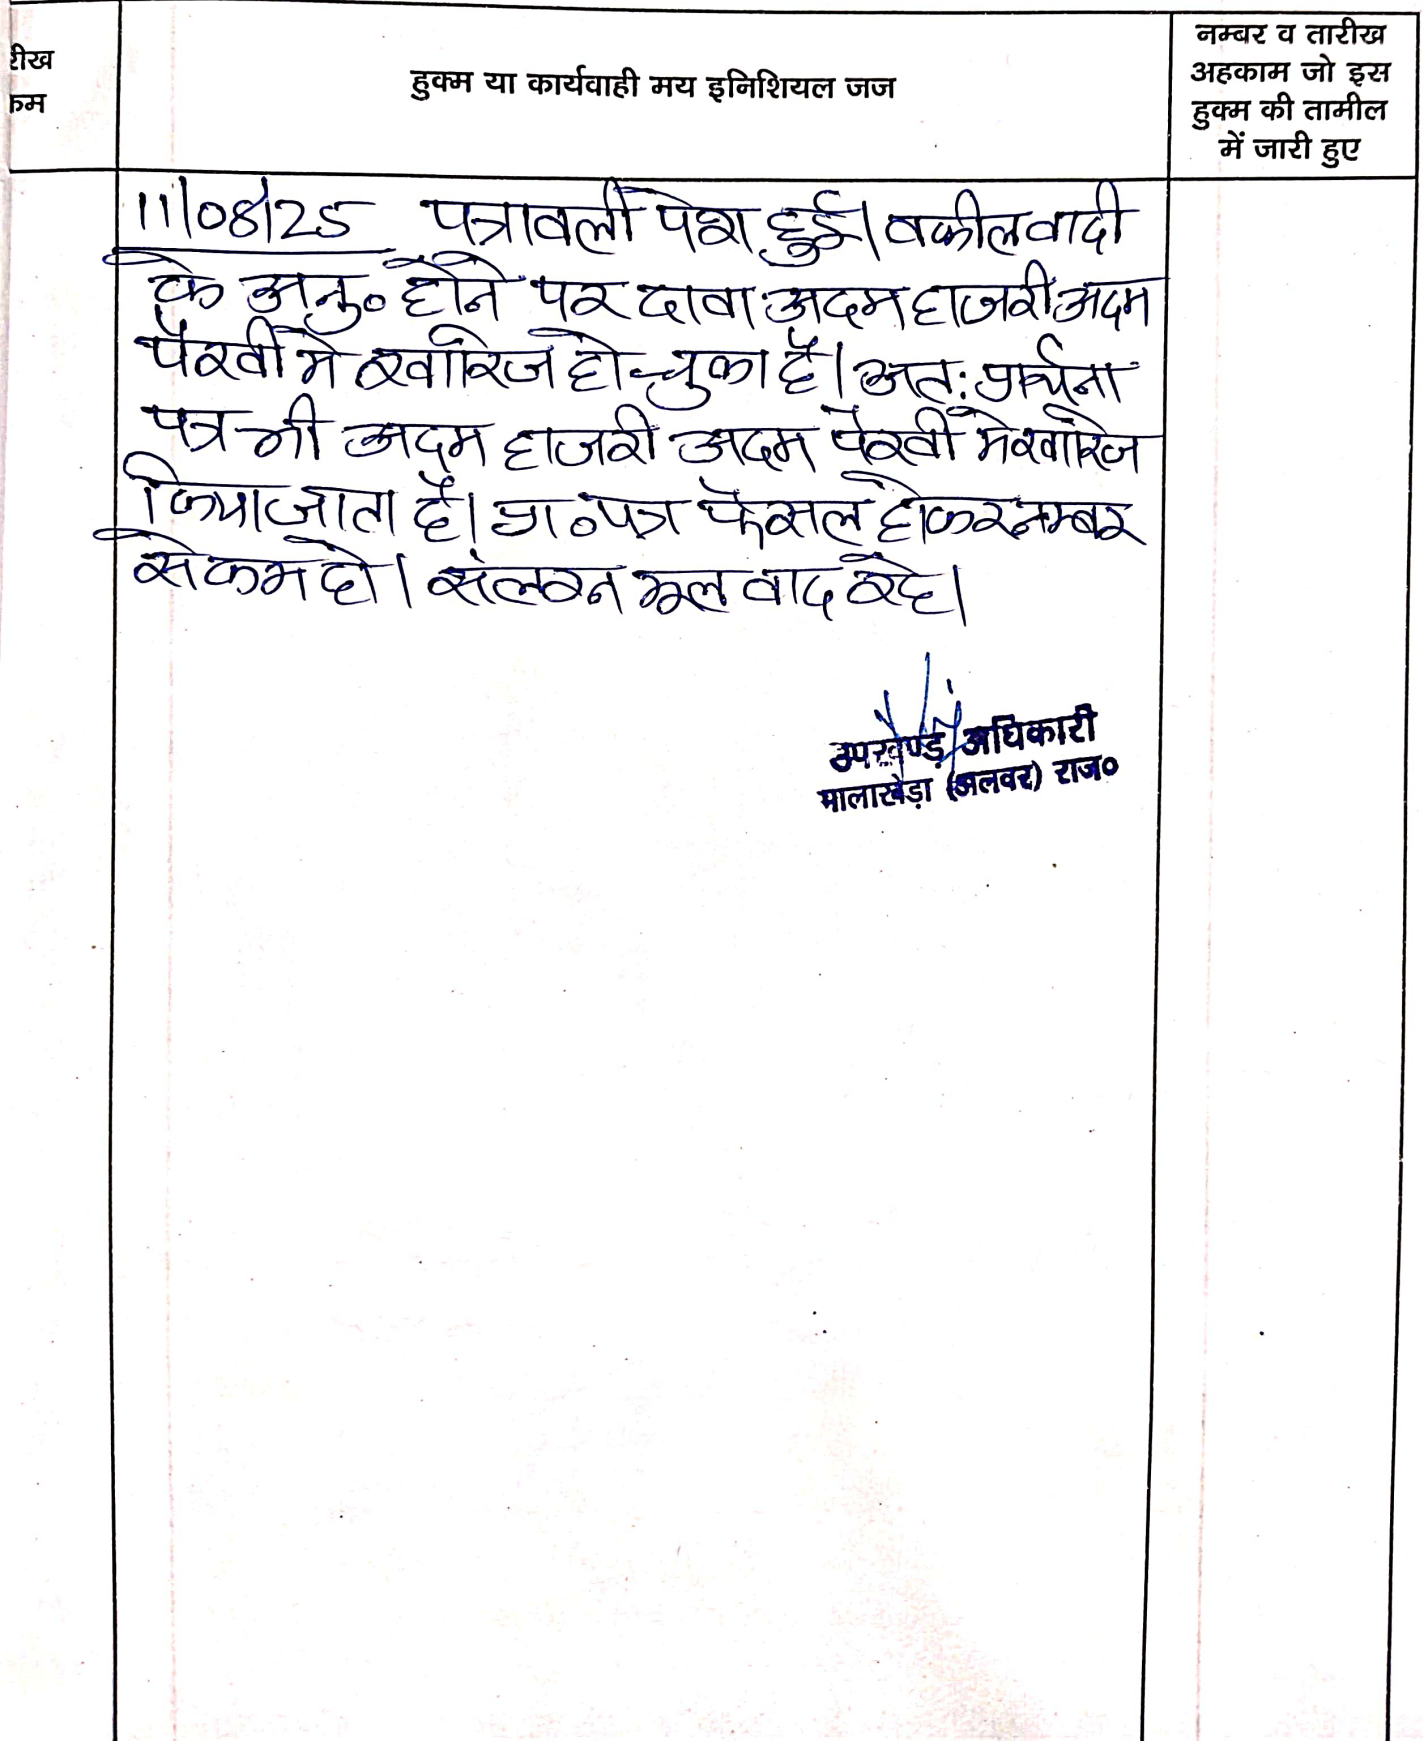 रीख
कम
हुक्म या कार्यवाही मय इनिशियल जज
नम्बर व तारीख
अहकाम जो इस
हुक्म की तामील
में जारी हुए
11/08/25 पत्रावली पेश हुई। वकील वादी
के अनु॰ होने पर दावा अदम हाजरी अदम
पैरवी मे खारिज हो चुका है। अतः प्रार्थना
पत्र भी अदम हाजरी अदम पैरवी मे खारिज
किया जाता है। प्रा॰ पत्र फैसल होकर नम्बर
से कम हो। संलग्न मूल वाद रहे।
उपखण्ड अधिकारी
मालाखेड़ा (अलवर) राज०